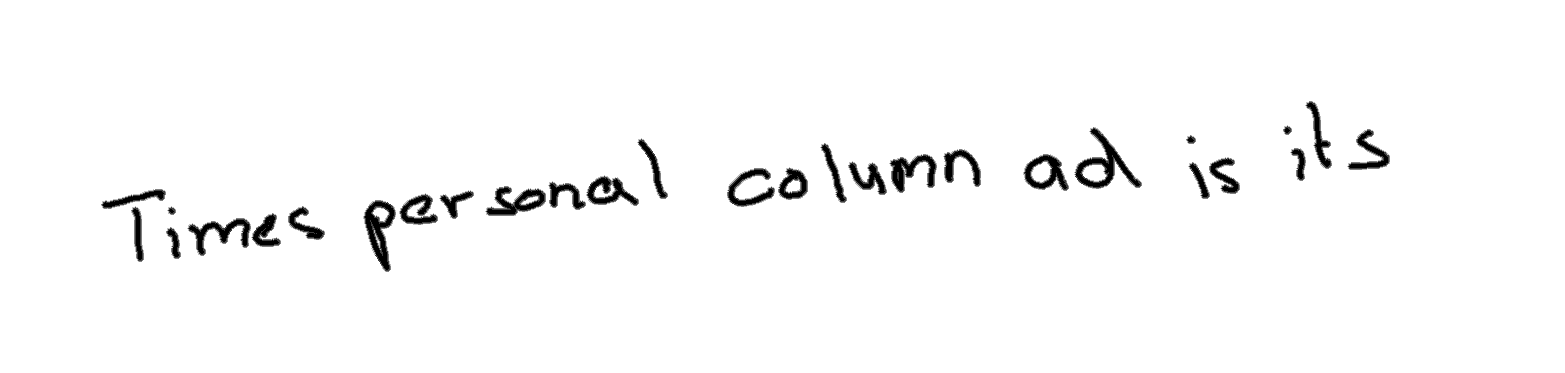 Times personal column ad is its